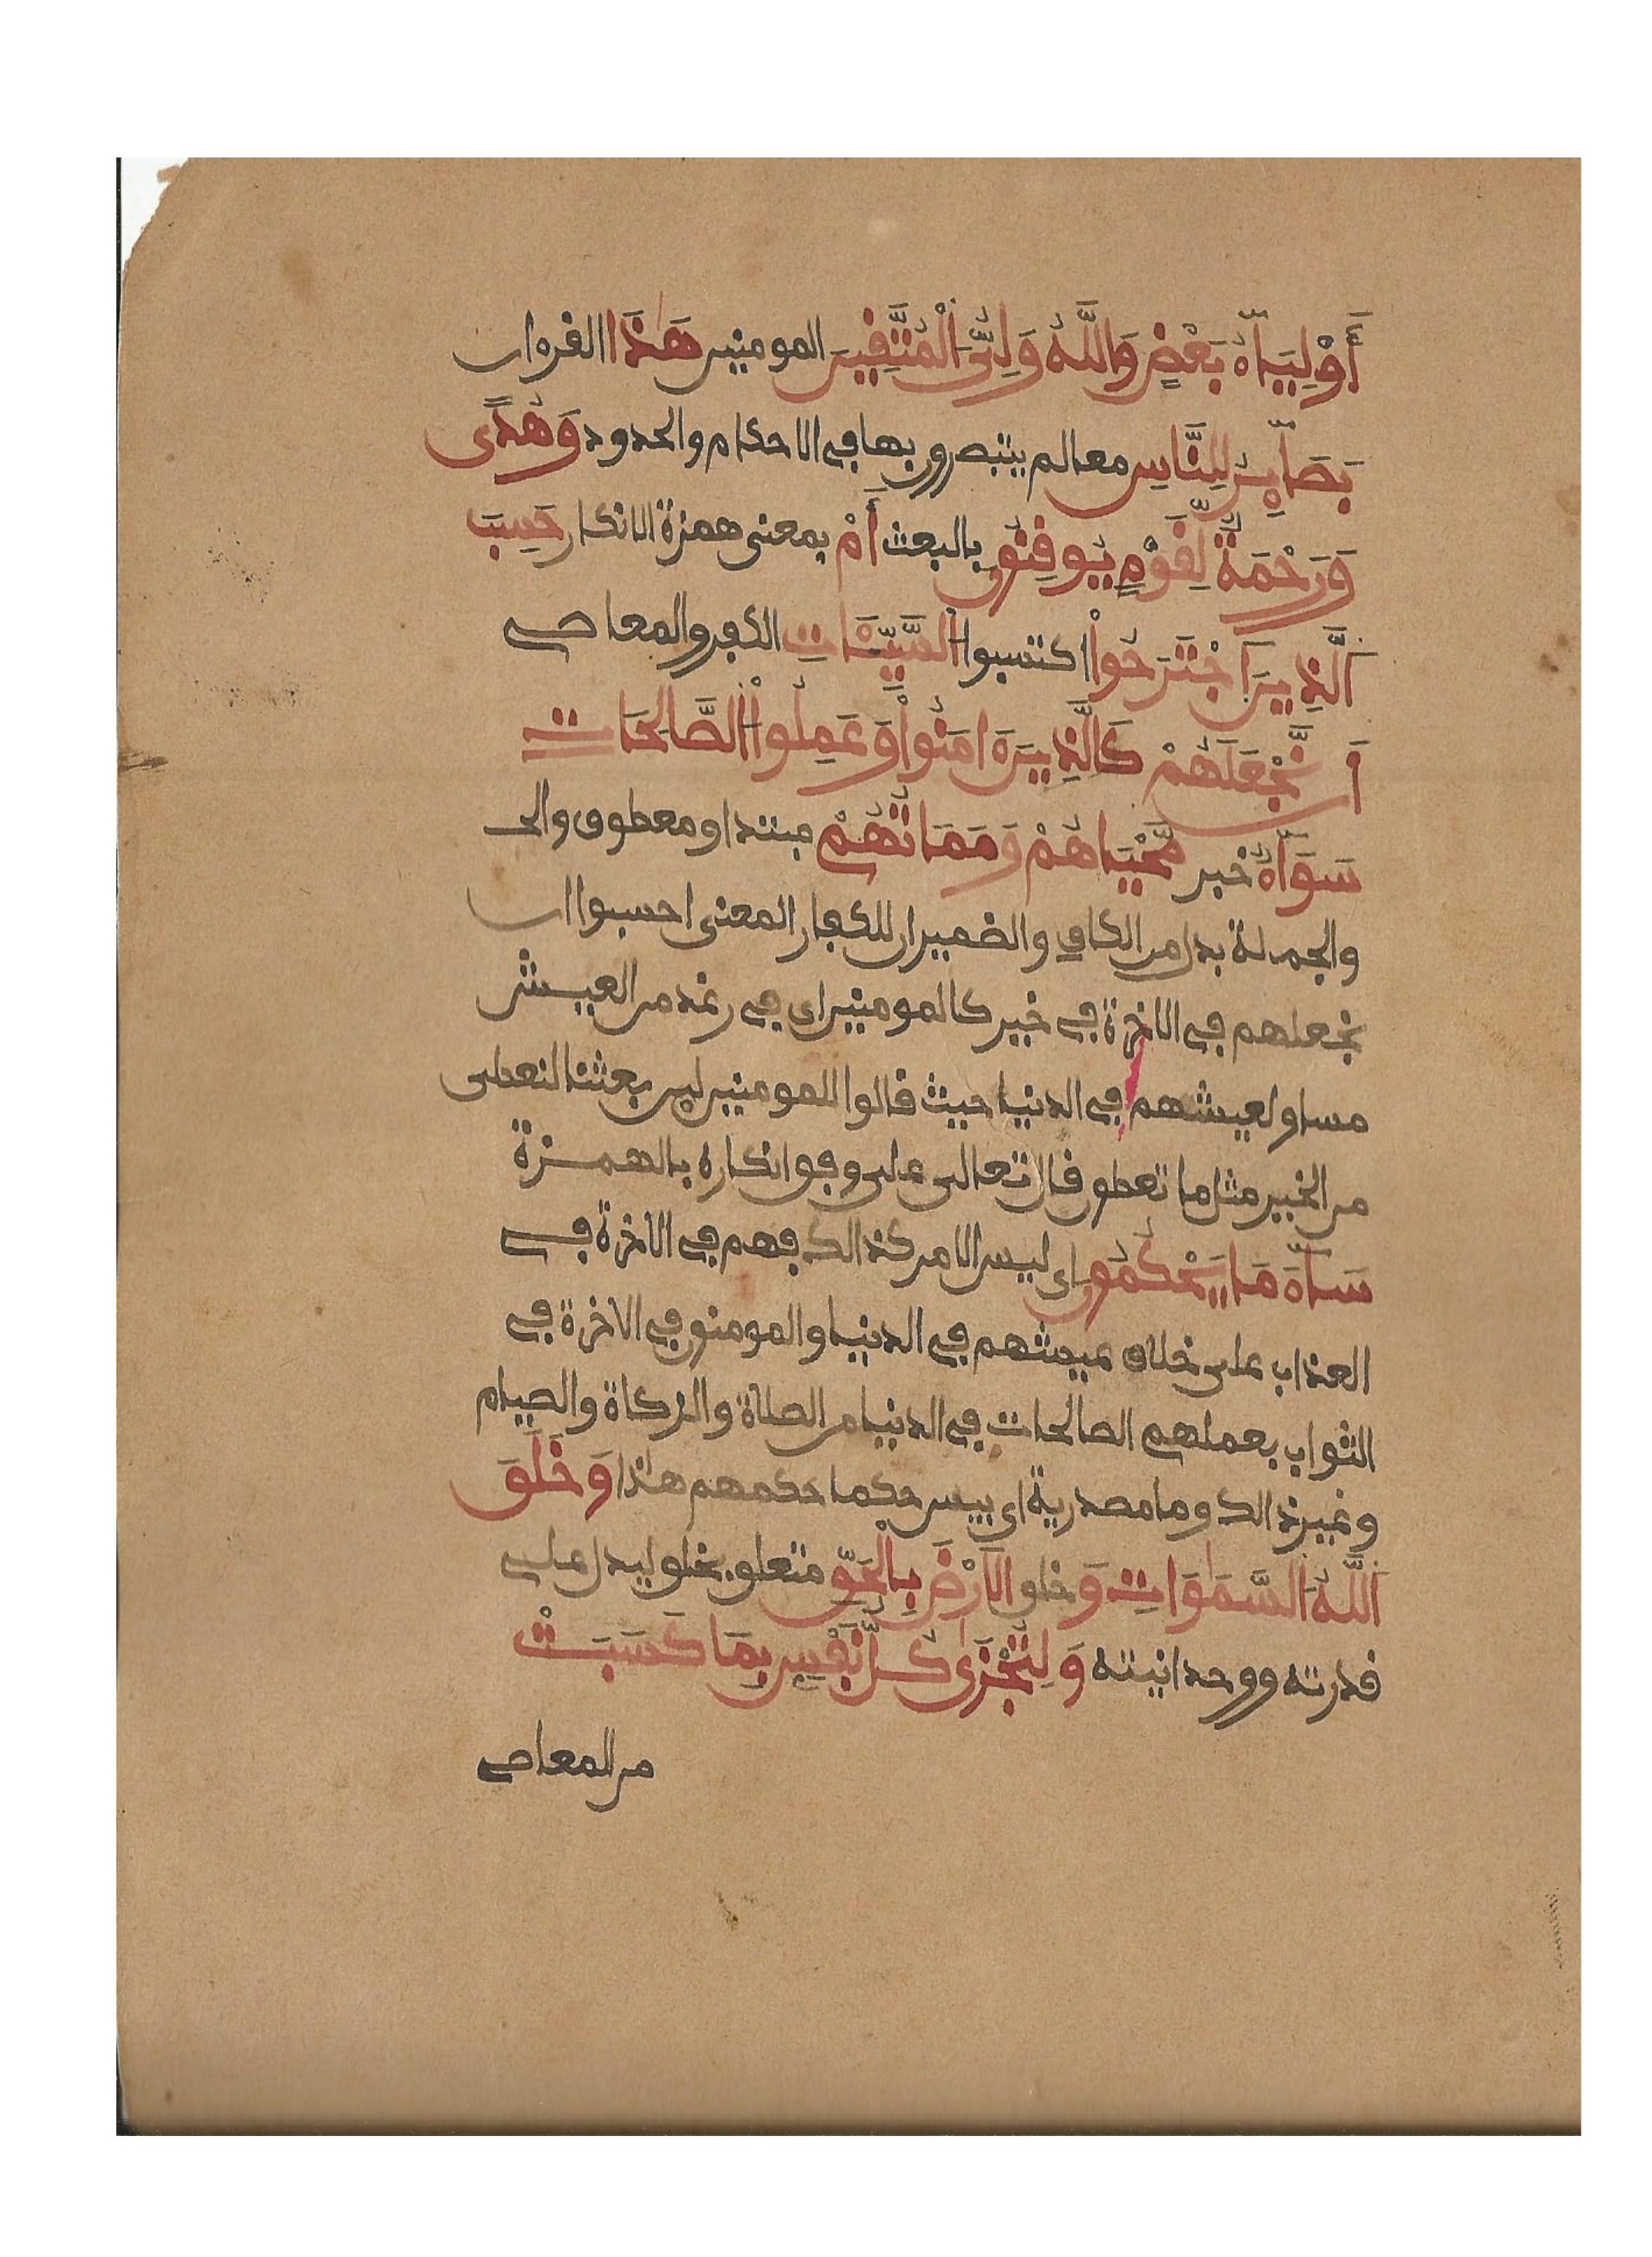 أَوْلِيَآءُ بَعْضٍ وَاللَّهُ وَلِيُّ اَلْمُتَّقِينَ المومنين هَٰذَا القرءان
بَصَآئِرُ لِلنَّاسِ معالم يتبصرون بها في الاحكام والحدود وَهُدًى
وَرَحْمَةٌ لِّقَوْمٍ يُوقِنُونَ بالبعث أَمْ بمعنى همزة الانكار حَسِبَ
اَلَّذِينَ اَجْتَرَحُواْ اكتسبوا اُلسَّيِّـَٔاتِ الكفر والمعاصي
أَن نَّجْعَلَهُمْ كَالَّذِينَ ءَامَنُواْ وَعَمِلُواْ اُلصَّالِحَاتِ
سَوَآءٌ خبر مَّحْيَاهُمْ وَمَمَاتُهُمْ مبتدا ومعطوف والى
والجملة بدل من الكاف والضميران للكفار المعنى احسبوا ان
نجعلهم في الاخرة في خير كالمومنين اي في رغد من العيش
مساو لعيشهم في الدنيا حيث قالوا للمومنين لين بعثنا لنعطى
من الخير مثل ما تعطون قال تعالى على وفق انكاره بالهمزة
سَآءَ مَا يَحْكُمُونَ اي ليس الامر كذالك فهم في الاخرة في
العذاب على خلاف عيشهم في الدنيا والمومنون في الاخرة في
الثواب بعملهم الصالحات في الدنيا من الصلاة والزكاة والصيام
وغير ذالك وما مصدرية اي بيس حكما حكمهم هاذا وَخَلَقَ
اَللَّهُ اُلسَّمَٰوَاتِ وَ خلق اَلَارْضَ بِالْحَقِّ متعلق بخلق ليدل على
قدرته ووحدانيته وَلِتُجْزَىٰ كُلُّ نَفْسٍ بِمَا كَسَبَتْ
من المعاصي